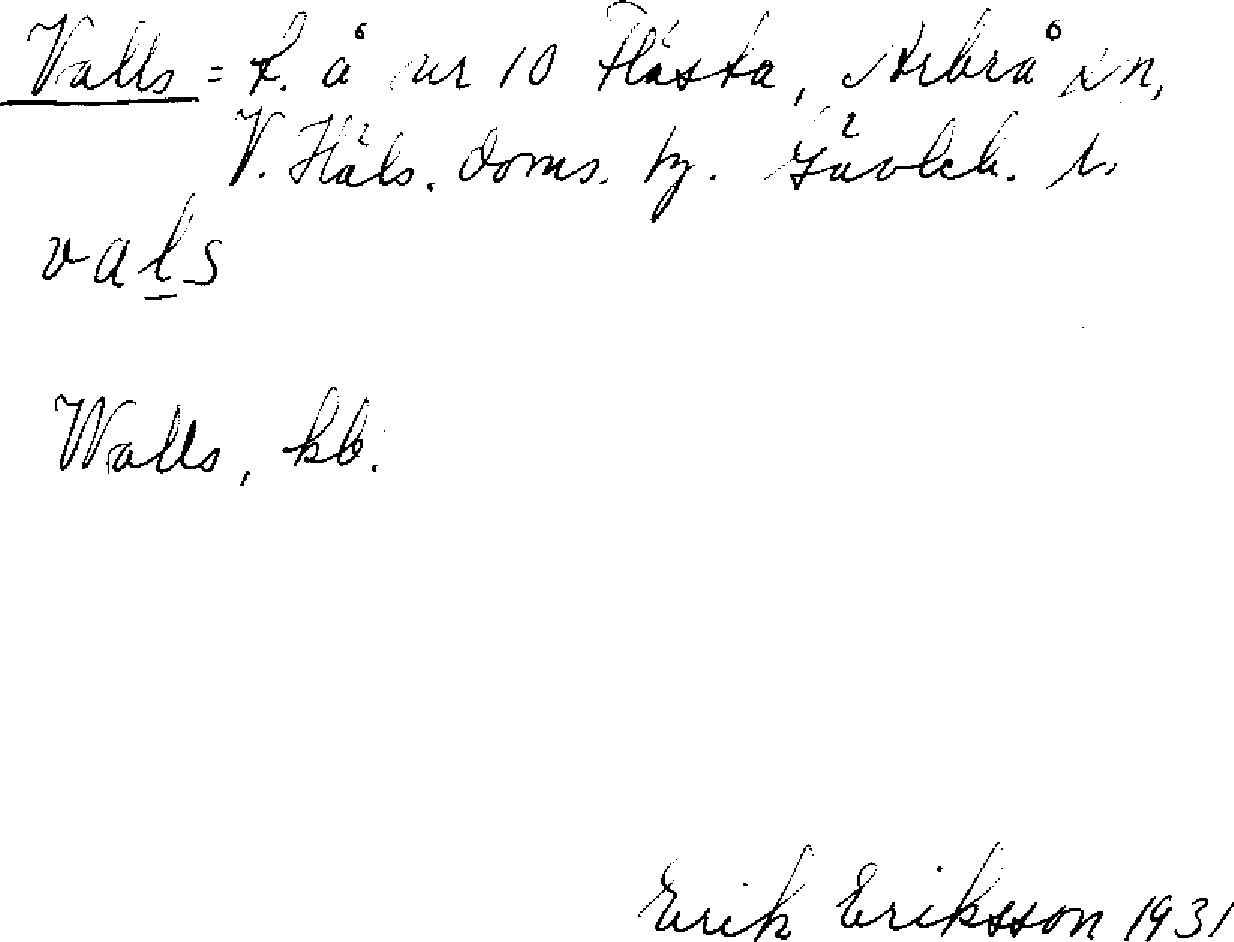 Valls = f. å nr 10 Flästa, Arbrå sn,
V. Häls. doms. hg. Gävleb. l.
vals
Walls, kb.
Erik Eriksson 1931